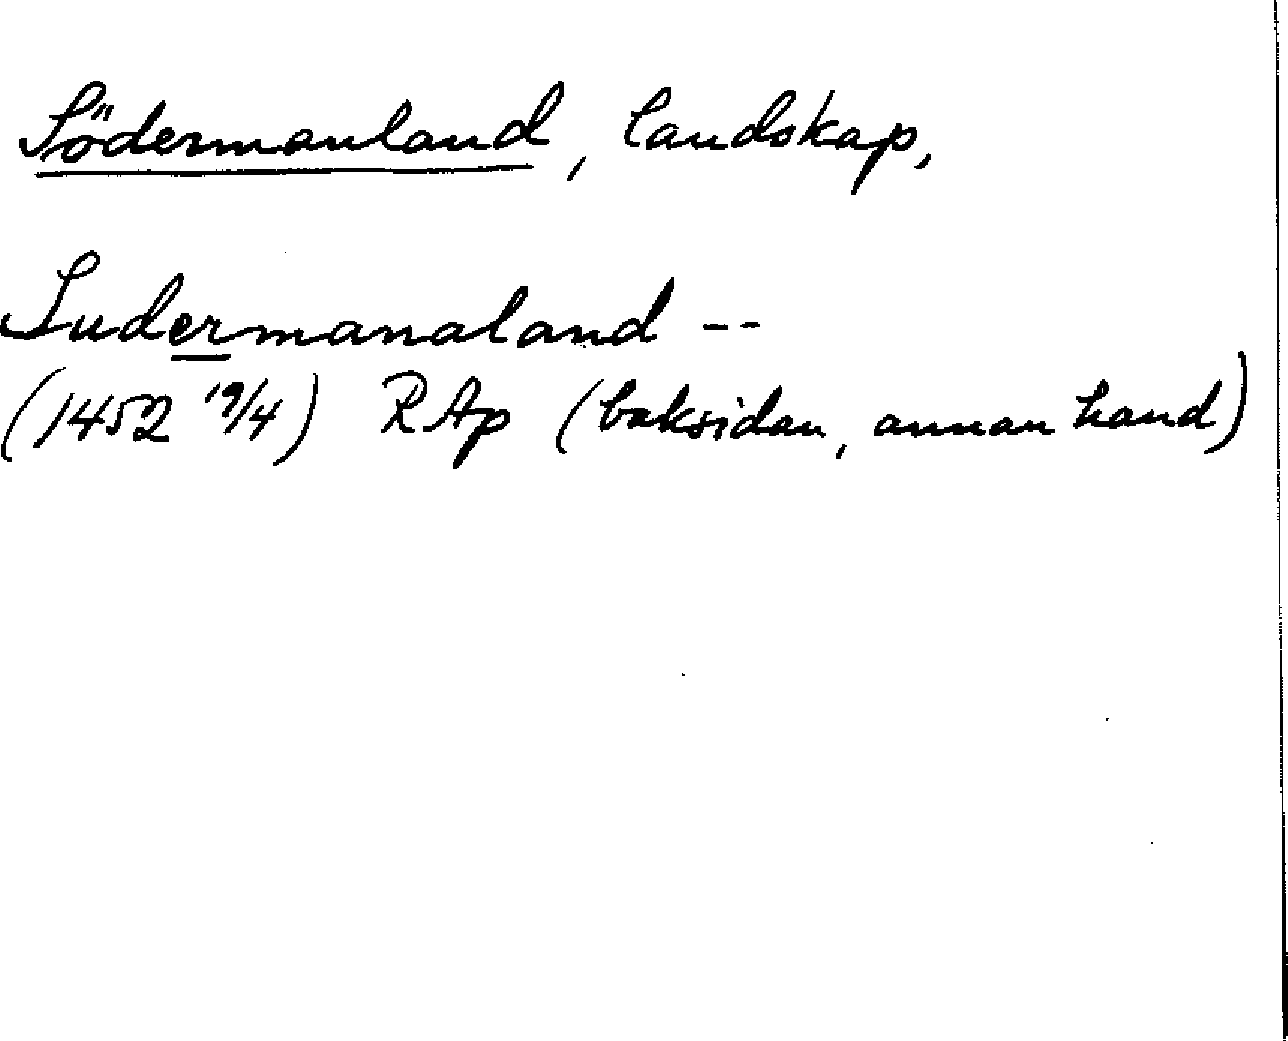 Södermanland, landskap,
Sudermanaland --
(1452 19/4) RAp (baksidan, annan hand)